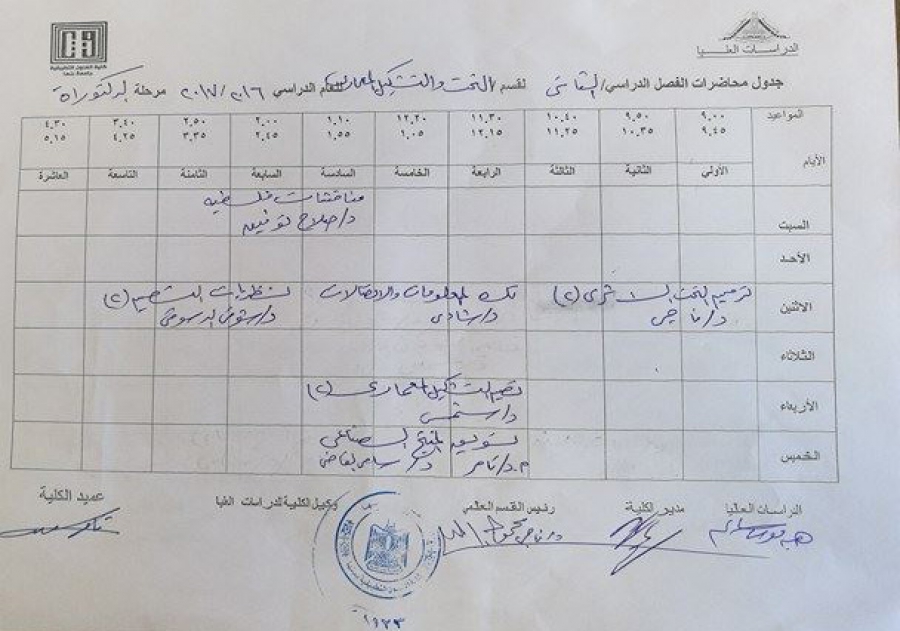 كلية الفنون التطبيقية
جامعة بنها
الدراسات العليا
جدول محاضرات الفصل الدراسي/ الثاني لقسم النحت والتشكيل المعماري للعام الدراسي ٢٠١٦/ ٢٠١٧ مرحلة الدكتوراة
المواعيد ٩.٠٠ ٩.٥٠ ١٠.٤٠ ١١.٣٠ ١٢.٢٠ ١.١٠ ٢.٠٠ ٢.٥٠ ٣.٤٠ ٤.٣٠
٩.٤٥ ١٠.٣٥ ١١.٢٥ ١٢.١٥ ١.٠٥ ١.٥٥ ٢.٤٥ ٣.٣٥ ٤.٢٥ ٥.١٥
الأيام الأولي الثانية الثالثة الرابعة الخامسة السادسة السابعة الثامنة التاسعة العاشرة
السبت
مناقشات فلسفية
د/ صلاح توفيق
الأحد
الاثنين
ترميم النحت الأثري (٢) تك المعلومات والاتصالات نظريات التصميم (٢)
د/ ناجي د/ شادي د/
الثلاثاء
الأربعاء
تصميم التشكيل المعماري (٢)
د/ شمس
الخميس
تسويق المنتج الصناعي
م.د/ تامر د/ سامر
الدراسات العليا مدير الكلية رئيس القسم العلمي وكيل الكلية للدراسات العليا عميد الكلية
د/ ناجي
١٩٢٣